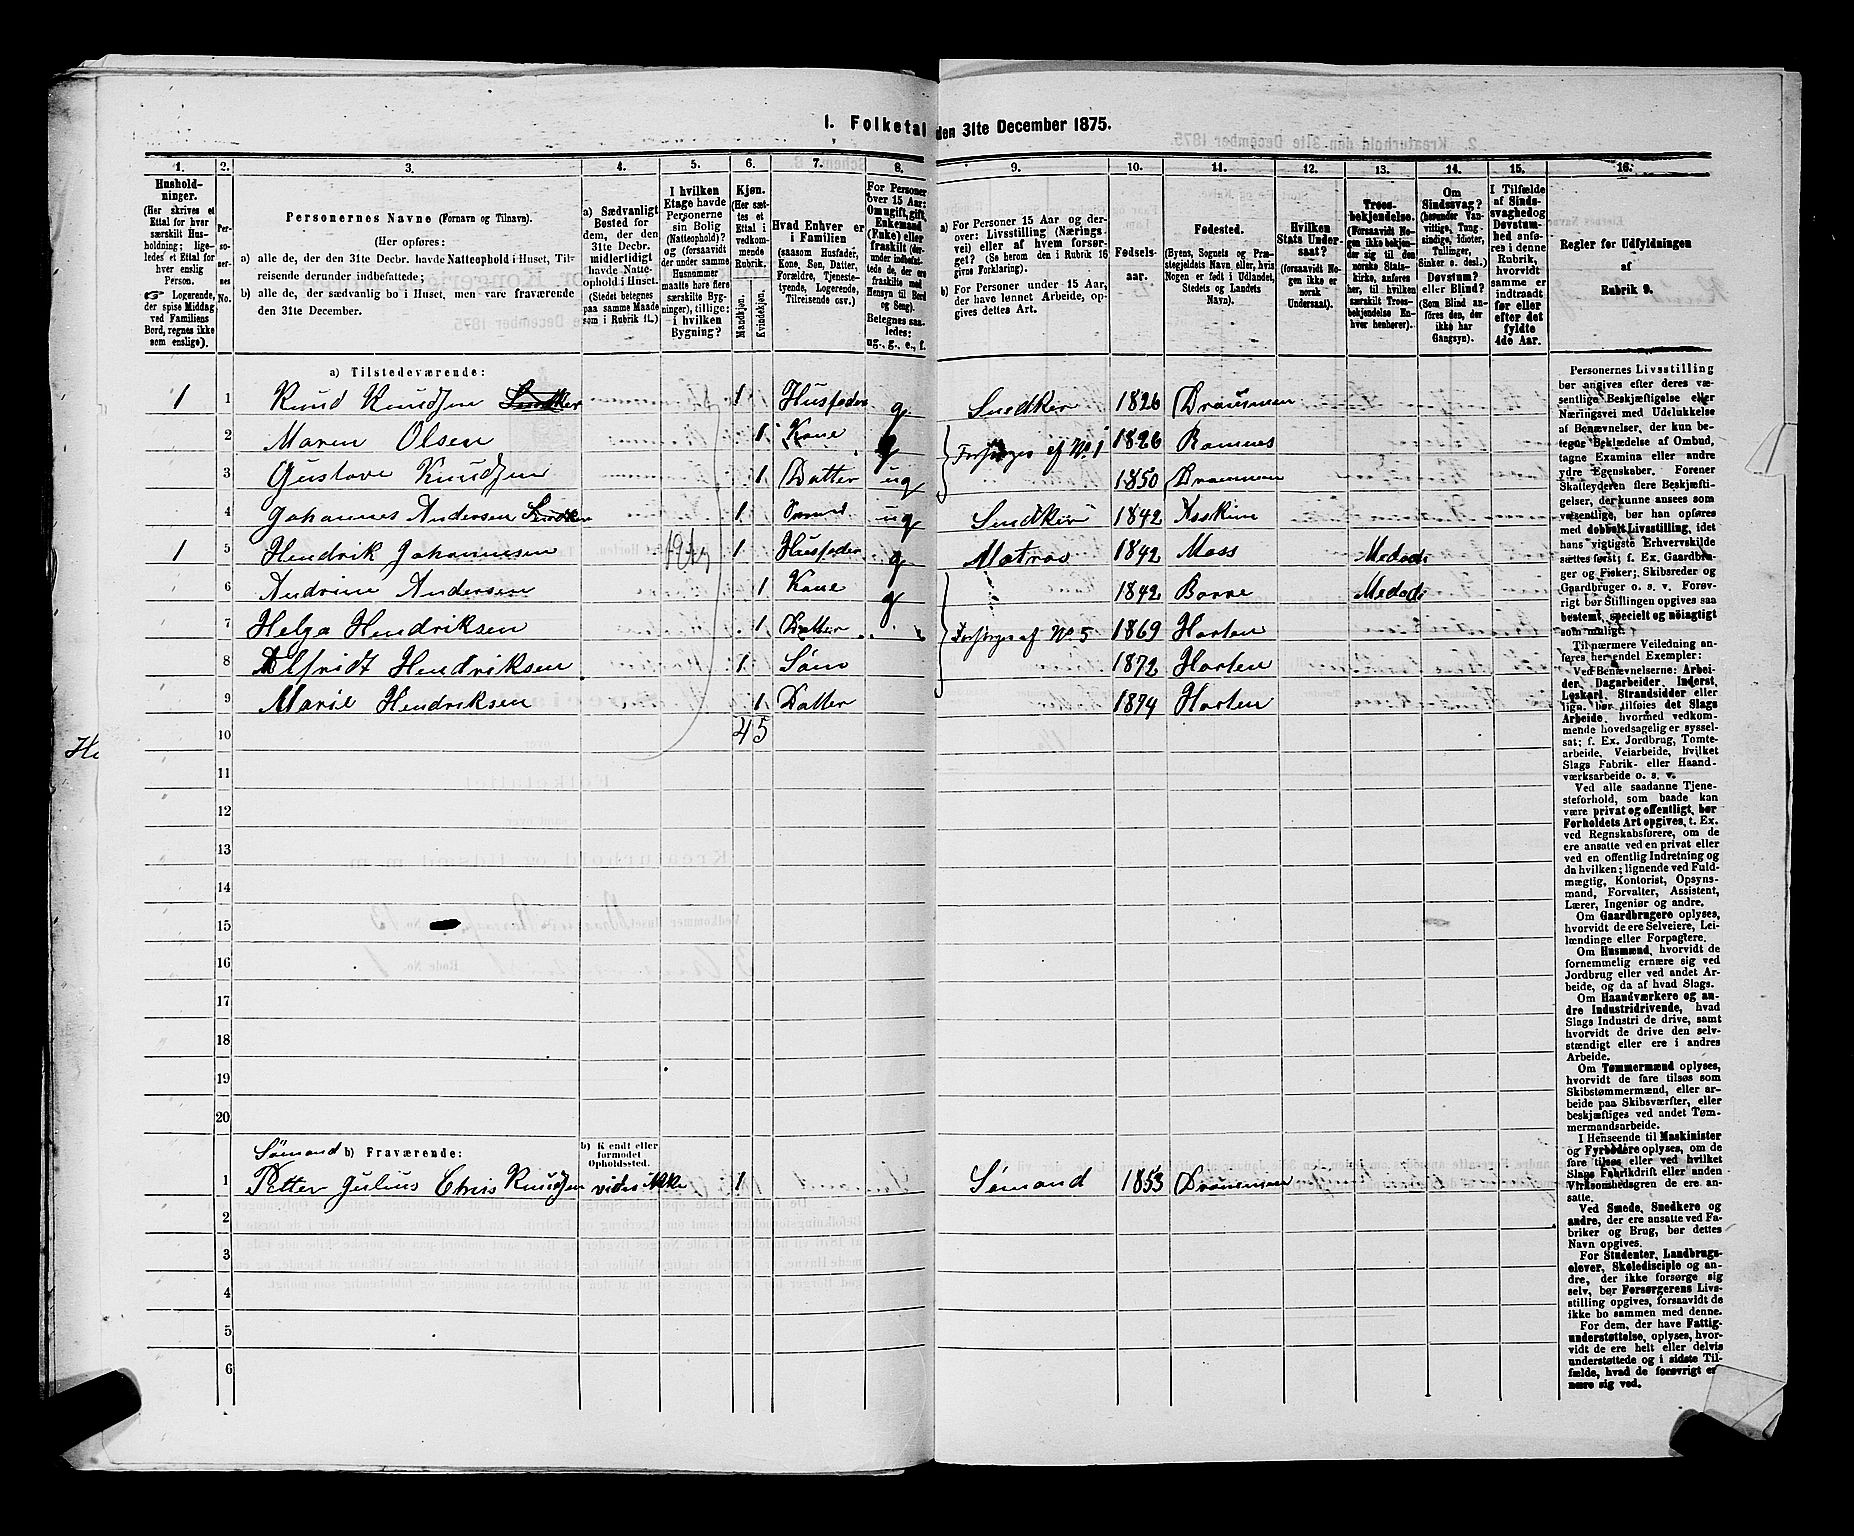 1. Folketal den 31te December 1875.
1. 2. 3. 4. 5. 6. 7. 8. 9. 10. 11. 12. 13. 14. 15. 16.
Hushold-
ninger.
(Her skrives et
Ettal for hver
særskilt Hus-
holdning; lige-
ledes et Ettal for
hver enslig
Person.
☞ Logerende,
der spise Middag
ved Familiens
Bord, regnes ikke
som enslige).
Per-
so-
ner-
nes
No.
Personernes Navne (Fornavn og Tilnavn).
(Her opføres:
a) alle de, der den 31te Decbr. havde Natteophold i Huset, Til-
reisende derunder indbefattede;
b) alle de, der sædvanlig bo i Huset, men vare fraværende
den 31te December.
a) Sædvanligt
Bosted for
dem, der den
31te Decbr.
midlertidigt
havde Natte-
ophold i Huset.
(Stedet betegnes
paa samme Maade
som i Rubrik 11.)
I hvilken
Etage havde
Personerne
sin Bolig
(Natteophold)?
og (forsaavidt
der under samme
Husnummer
maatte høre flere
særskilte Byg-
ninger), tillige:
i hvilken
Bygning?
Kjøn.
(Her sæt-
tes et
Ettal i
vedkom-
mende
Rubrik.
Mandkjøn.
Kvindekjøn.
Hvad Enhver er
i Familien
(saasom Husfader,
Kone, Søn, Datter,
Forældre, Tjeneste-
tyende, Logerende,
Tilreisende osv.)
For Personer
over 15 Aar:
Om ugift, gift,
Enkemand
(Enke) eller
fraskilt (der-
under indbefat-
tede de, der ere
fraskilte med
Hensyn til Bord
og Seng).
Betegnes saa-
ledes:
ug., g., e., f.
a) For Personer 15 Aar og der-
over: Livsstilling (Nærings-
vei) eller af hvem forsør-
get? (Se herom den i Rubrik 16
givne Forklaring).
b) For Personer under 15 Aar,
der have lønnet Arbeide, op-
gives dettes Art.
Fødsels-
aar.
Fødested.
(Byens, Sognets og Præ-
stegjeldets Navn, eller, hvis
Nogen er født i Udlandet,
Stedets og Landets
Navn).
Hvilken
Stats Under-
saat?
(forsaavidt No-
gen ikke er
norsk
Undersaat).
Troes-
bekjendelse.
(Forsaavidt No-
gen ikke bekjen-
der sig til den
norske Stats-
kirke, anføres
her, til hvilken
særskilt Troes-
bekjendelse En-
hver henhører).
Om
Sindssvag?
(herunder Van-
vittige, Tung-
sindige, Idioter,
Tullinger,
Sinker o. desl.)
Døvstum?
eller Blind?
(Som Blind an-
føres den, der
ikke har
Gangsyn).
I Tilfælde
af Sinds-
svaghed og
Døvstum-
hed anfø-
res i denne
Rubrik,
hvorvidt
samme er
indtraadt
før eller
efter det
fyldte
4de Aar.
Regler for Udfyldningen
af
Rubrik 9.
a) Tilstedeværende:
1 1 Knud Knudsen Snedker 1 Husfader g Snedker 1826 Drammen
2 Maren Olsen 1 Kone g Forsørges af No. 1 1826 Ramnes
3 Gustave Knudsen 1 Datter ug 1850 Drammen
4 Johannes Andersen Snedker 1 ug Snedker 1842 Askim
1 5 Hendrik Johannesen 1 Husfader g Matros 1842 Moss Medodi
6 Andrine Andersen 1 Kone g 1842 Borre Medodi
7 Helga Hendriksen 1 Datter Forsørges af No. 5 1869 Horten
8 Alfridt Hendriksen 1 Søn 1872 Horten
9 Marie Hendriksen 1 Datter 1874 Horten
10 4 5
11
12
13
14
15
16
17
18
19
20
Sømand b) Fraværende: b) Kjendt eller
formodet
Opholdssted.
1 Petter Julius Chris Knudsen vides ikke 1 Sømand 1853 Drammen
2
3
4
5
6
Personernes Livsstilling
bør angives efter deres væ-
sentlige Beskjæftigelse eller
Næringsvei med Udelukkelse
af Benævnelser, der kun be-
tegne Beklædelse af Ombud,
tagne Examina eller andre
ydre Egenskaber. Forener
Skatteyderen flere Beskjæfti-
gelser, der kunne ansees som
væsentlige, bør han opføres
med dobbelt Livsstilling, idet
hans vigtigste Erhvervskilde
sættes først; f. Ex. Gaardbru-
ger og Fisker; Skibsreder og
Gaardbruger o. s. v. Forøv-
rigt bør Stillingen opgives saa
bestemt, specielt og nøiagtigt
som muligt.
Til nærmere Veiledning an-
føres her endel Exempler:
Ved Benævnelserne: Arbei-
der, Dagarbeider, Inderst,
Løskarl, Strandsidder eller
lign. bør tilføies det Slags
Arbeide, hvormed vedkom-
mende hovedsagelig er syssel-
sat; f. Ex. Jordbrug, Tomte-
arbeide, Veiarbeide, hvilket
Slags Fabrik- eller Haand-
værksarbeide o. s. v.
Ved alle saadanne Tjene-
steforhold, som baade kan
være privat og offentligt, bør
Forholdets Art opgives, t. Ex.
ved Regnskabsførere, om de
ere ansatte ved en privat eller
ved en offentlig Indretning og
da hvilken; lignende ved Fuld-
mægtig, Kontorist, Opsyns-
mand, Forvalter, Assistent,
Lærer, Ingeniør og andre.
Om Gaardbrugere oplyses,
hvorvidt de ere Selveiere, Lei-
lændinge eller Forpagtere.
Om Husmænd, hvorvidt de
fornemmelig ernære sig ved
Jordbrug eller ved andet Ar-
beide, og da af hvad Slags.
Om Haandværkere og an-
dre Industridrivende, hvad
Slags Industri de drive, samt
hvorvidt de drive den selv-
stændigt eller ere i andres
Arbeide.
Om Tømmermænd oplyses,
hvorvidt de fare tilsøs som
Skibstømmermænd, eller ar-
beide paa Skibsværfter, eller
beskjæftiges ved andet Tøm-
mermandsarbeide.
I Henseende til Maskinister
og Fyrbødere oplyses, om de
fare tilsøs eller ved hvilket
Slags Fabrikdrift eller anden
Virksomhedsgren de ere an-
satte.
Ved Smede, Snedkere og
andre, der ere ansatte ved Fa-
briker og Brug, bør dettes
Navn opgives.
For Studenter, Landbrugs-
elever, Skoledisciple og an-
dre, der ikke forsørge sig
selv, bør Forsørgerens Livs-
stilling opgives, forsaavidt de
ikke bo sammen med denne.
For dem, der have Fattig-
understøttelse, oplyses, hvor-
vidt de ere helt eller delvis
understøttede og i sidste Til-
fælde, hvad de forøvrigt er-
nære sig ved.